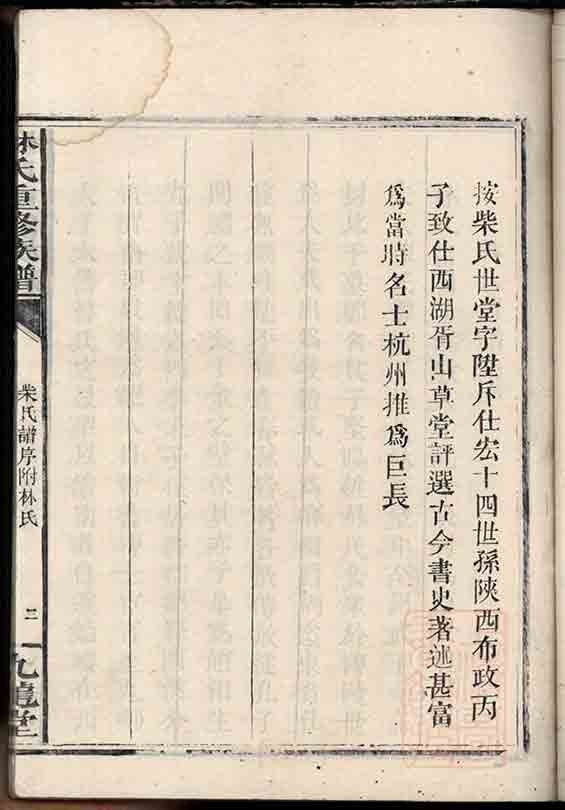 按柴氏世堂字陞斥仕宏十四世孫陝西布政丙
子致仕西湖胥山草堂評選古今書史著述甚富
爲當時名士杭州推爲巨長
林氏重修族譜
柴氏譜序附林氏
二
九龍堂